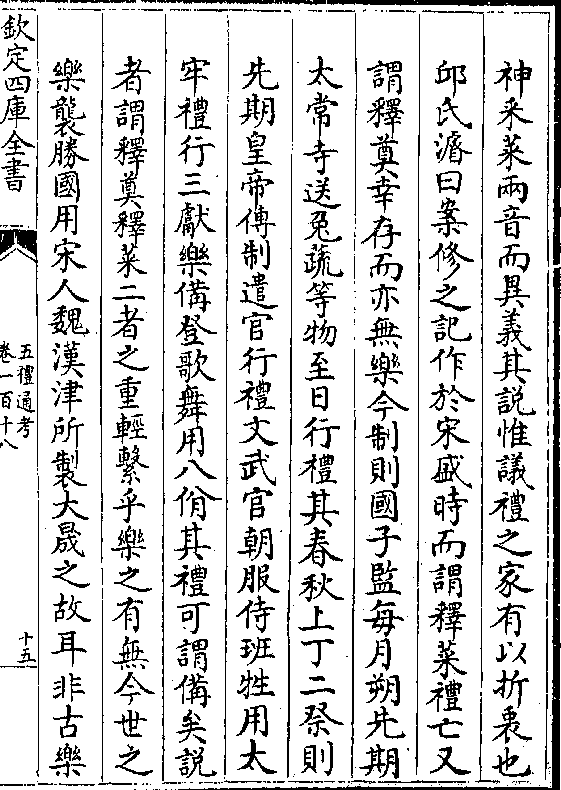 神釆菜兩音而異義其説惟議禮之家有以折衷也
邱氏濬曰案修之記作於宋盛時而謂釋菜禮亡又
謂釋奠幸存而亦無樂今制則國子監每月朔先期
太常寺送兔蔬等物至日行禮其春秋上丁二祭則
先期皇帝傳制遣官行禮文武官朝服侍班牲用太
牢禮行三獻樂備登歌舞用八佾其禮可謂備矣説
者謂釋奠釋菜二者之重輕繫乎樂之有無今世之
樂襲勝國用宋人魏漢津所製大晟之故耳非古樂
欽定四庫全書
五禮通考
卷一百十八
十五